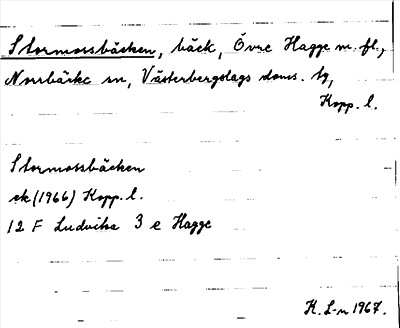 Stormossbäcken, bäck, Övre Hagge m. fl.,
Norrbärke sn, Västerbergslags doms. tg,
Kopp. l.
Stormossbäcken
ek (1966) Kopp. l.
12 F Ludvika 3 e Hagge
K. L-n 1967.